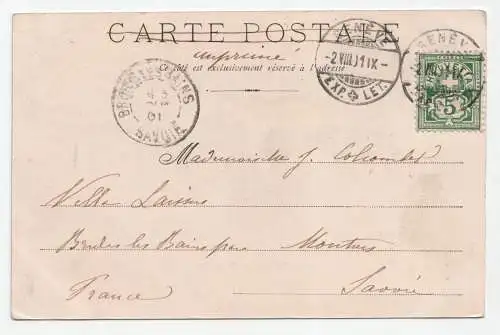 CARTE POSTALE
imprimé
Ce côté est exclusivement réservé à l'adresse
GENÈVE
-2.VIII.01 IX-
EXP. LET.
GENÈVE
5
BRIDES-LES-BAINS
01
SAVOIE
Mademoiselle J. Colcombet
Villa Laissus
Brides les Bains par Moutiers
Savoie
France